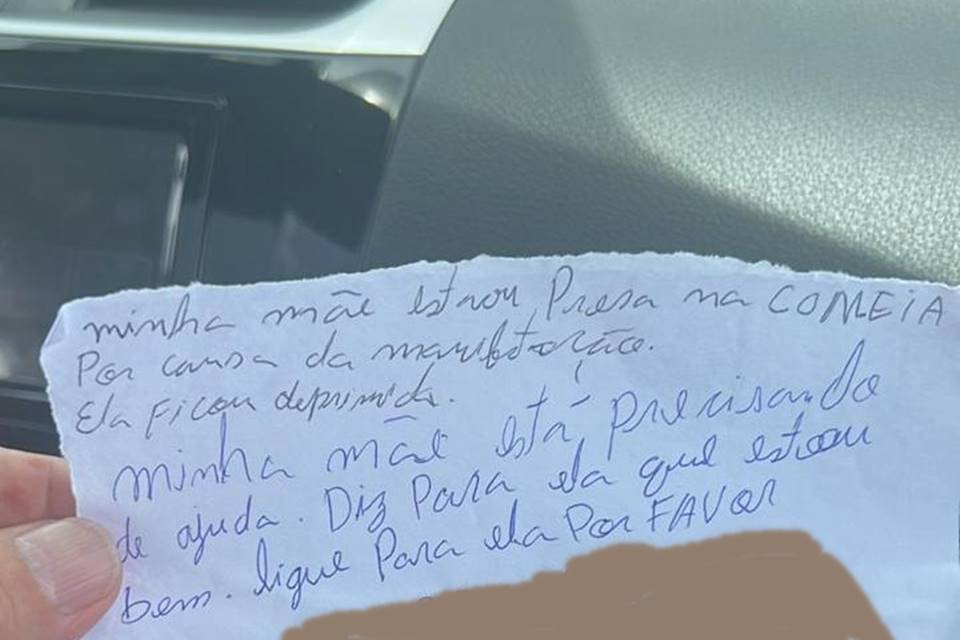 minha mãe estaou Presa na COMEiA
Por causa da manifestação.
Ela Ficou deprimida.
minha mãe está precisando
de ajuda. Diz Para ela que estou
bem. ligue Para ela Por FAVOR